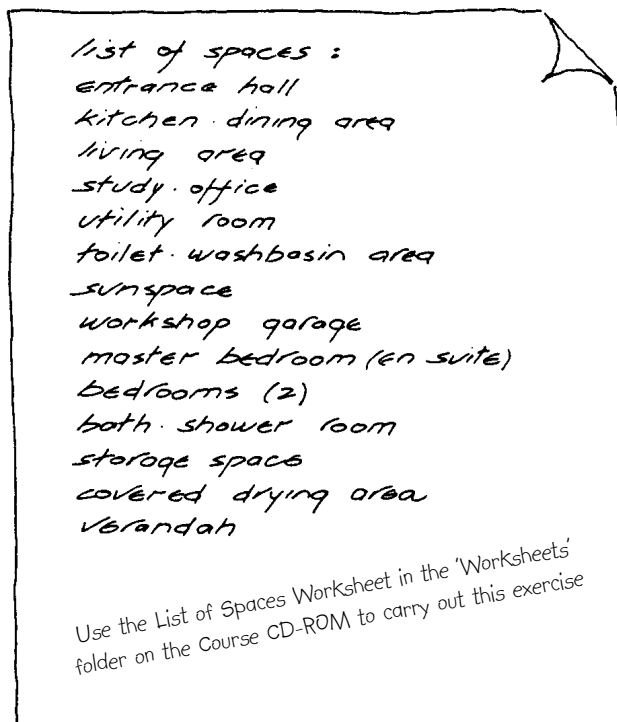 list of spaces :
entrance hall
kitchen · dining area
living area
study · office
utility room
toilet · washbasin area
sunspace
workshop garage
master bedroom (en suite)
bedrooms (2)
bath · shower room
storage space
covered drying area
verandah
Use the List of Spaces Worksheet in the 'Worksheets'
folder on the Course CD-ROM to carry out this exercise